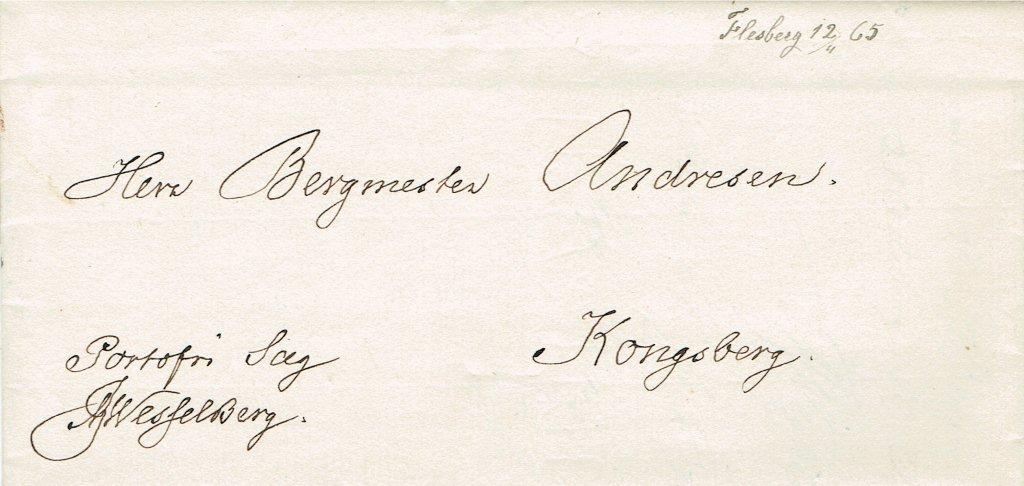 Flesberg 12/11 65
Herr Bergmester Andresen.
Portofri Sag Kongsberg.
Wesselberg.